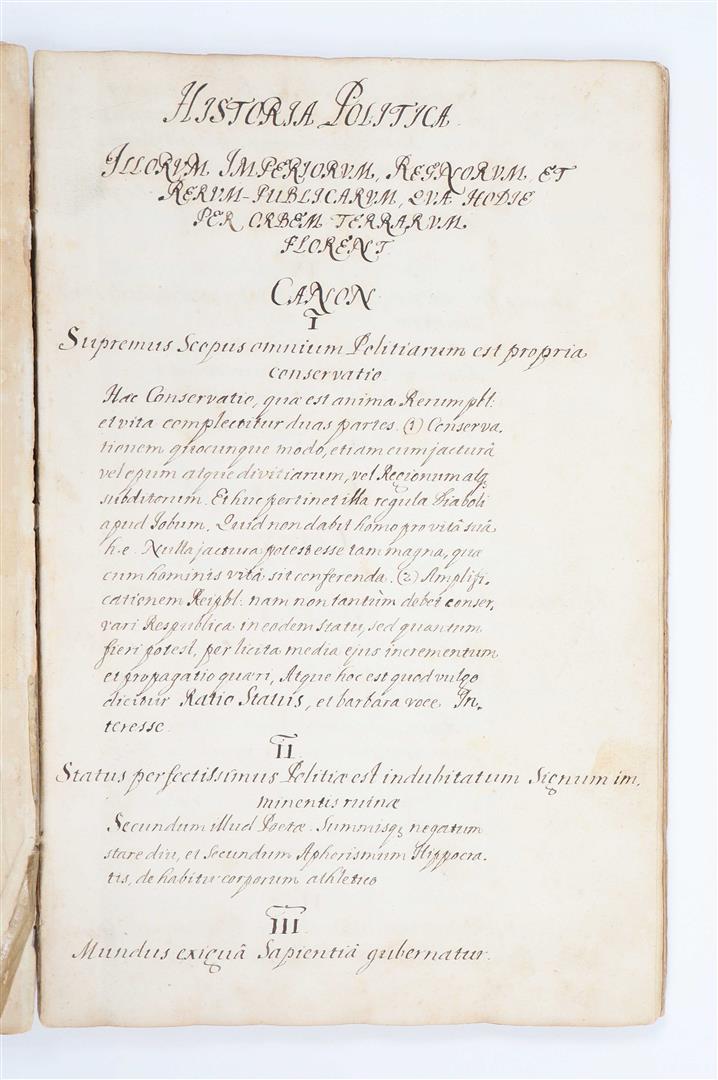 HISTORIA POLITICA
ILLORVM IMPERIORVM, REGNORVM ET
RERVM-PUBLICARVM, QVÆ HODIE
PER ORBEM TERRARVM
FLORENT
CANON
I
Supremus Scopus omnium Politiarum est propria
conservatio
Hæc Conservatio, quæ est anima Rerumpbl:
et vita complectitur duas partes. (1) Conserva-
tionem quocunque modo, etiam cum jacturâ
vel opum atque divitiarum, vel Regionum atq;
subditorum. Et huc pertinet illa regula Diaboli
apud Jobum. Quid non dabit homo pro vitâ suâ
h.e. Nulla jactura potest esse tam magna, quæ
cum hominis vitâ sit conferenda. (2) Amplifi-
cationem Reipbl: nam non tantùm debet conser,
vari Respublica in eodem statu, sed quantum
fieri potest, per licita media ejus incrementum
et propagatio quæri, Atque hoc est quod vulgo
dicitur Ratio Status, et barbara voce In,
teresse.
II
Status perfectissimus Politiæ est indubitatum Signum im,
minentis ruinæ
Secundum illud Poetæ. Summisq; negatum
stare diu, et secundum Aphorismum Hippocra-
tis, de habitu corporum athletico
III
Mundus exiguâ Sapientiâ gubernatur.